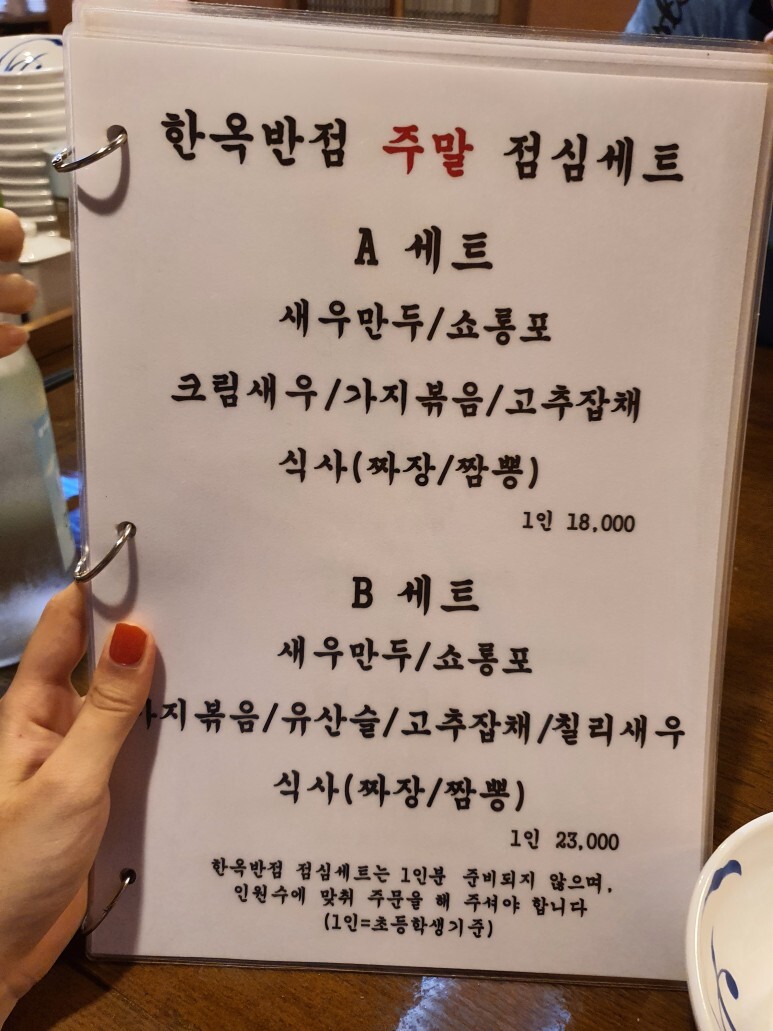 한옥반점 주말 점심세트
A 세트
새우만두/쇼롱포
크림새우/가지볶음/고추잡채
식사(짜장/짬뽕)
1인 18,000
B 세트
새우만두/쇼롱포
가지볶음/유산슬/고추잡채/칠리새우
식사(짜장/짬뽕)
1인 23,000
한옥반점 점심세트는 1인분 준비되지 않으며,
인원수에 맞춰 주문을 해 주셔야 합니다
(1인=초등학생기준)